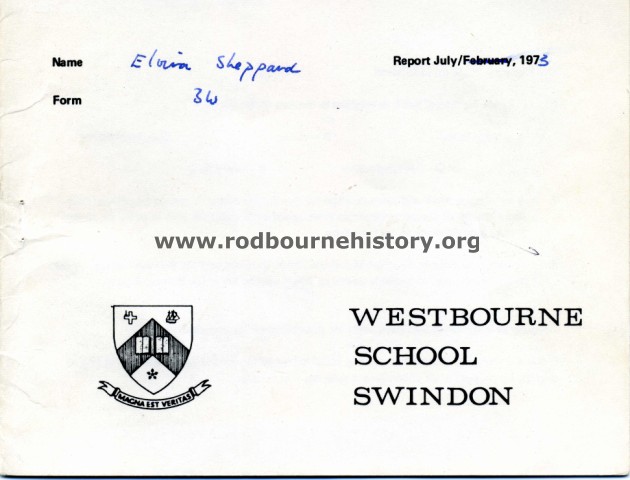 Name Elvira Sheppard
Report July/February, 1973
Form 3W
www.rodbournehistory.org
WESTBOURNE
SCHOOL
SWINDON
MAGNA EST VERITAS